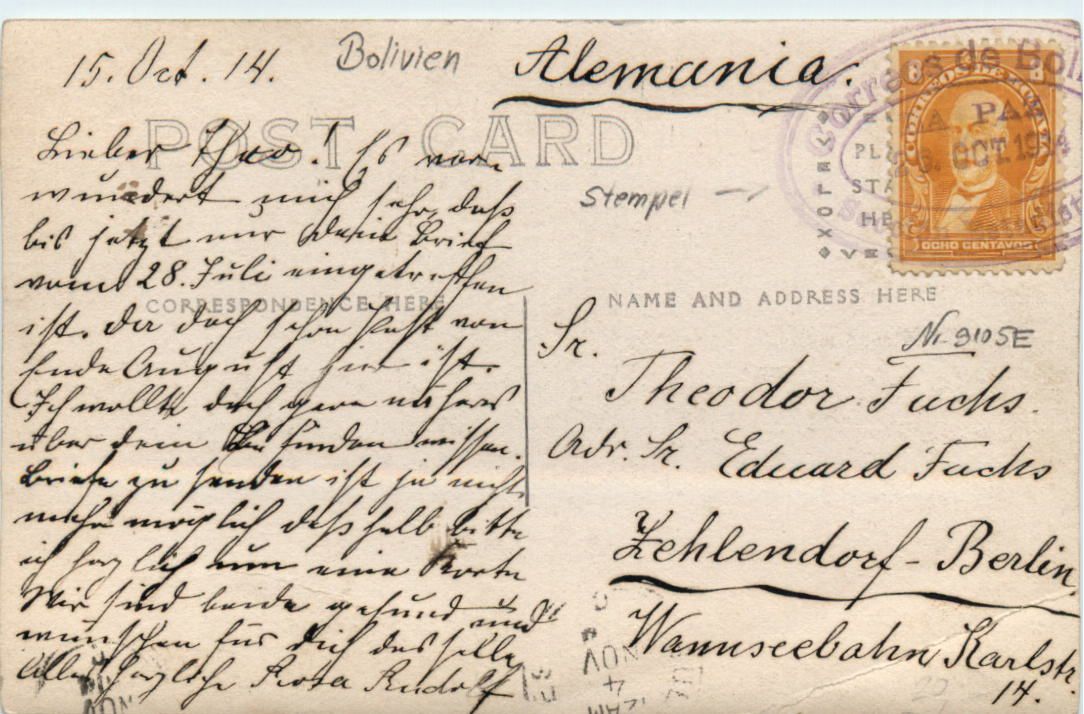 15. Oct. 14.
Bolivien
Alemania.
POST CARD
Lieber Theo! Es ver-
wundert mich sehr, daß
bis jetzt nur dein Brief
vom 28. Juli eingetroffen
ist. Da doch schon Post von
Ende August hier ist.
Ich wollte doch gern näheres
über dein Befinden wissen.
Briefe zu senden ist ja nicht
mehr möglich deßhalb bitte
ich herzlich um eine Karte
Wir sind beide gesund und
wünschen für dich dasselbe
Aller herzlichst Rosa Rudolf
CORRESPONDENCE HERE
Stempel
Correos de Boli
A PAZ
OCT 19
OCHO CENTAVOS
8 8
PL
STA
HE
NAME AND ADDRESS HERE
Nr. 9105E
Sr.
Theodor Fuchs.
Adr. Sr. Eduard Fuchs
Zehlendorf-Berlin
Wannseebahn Karlstr.
14.
NOV
4
NOV